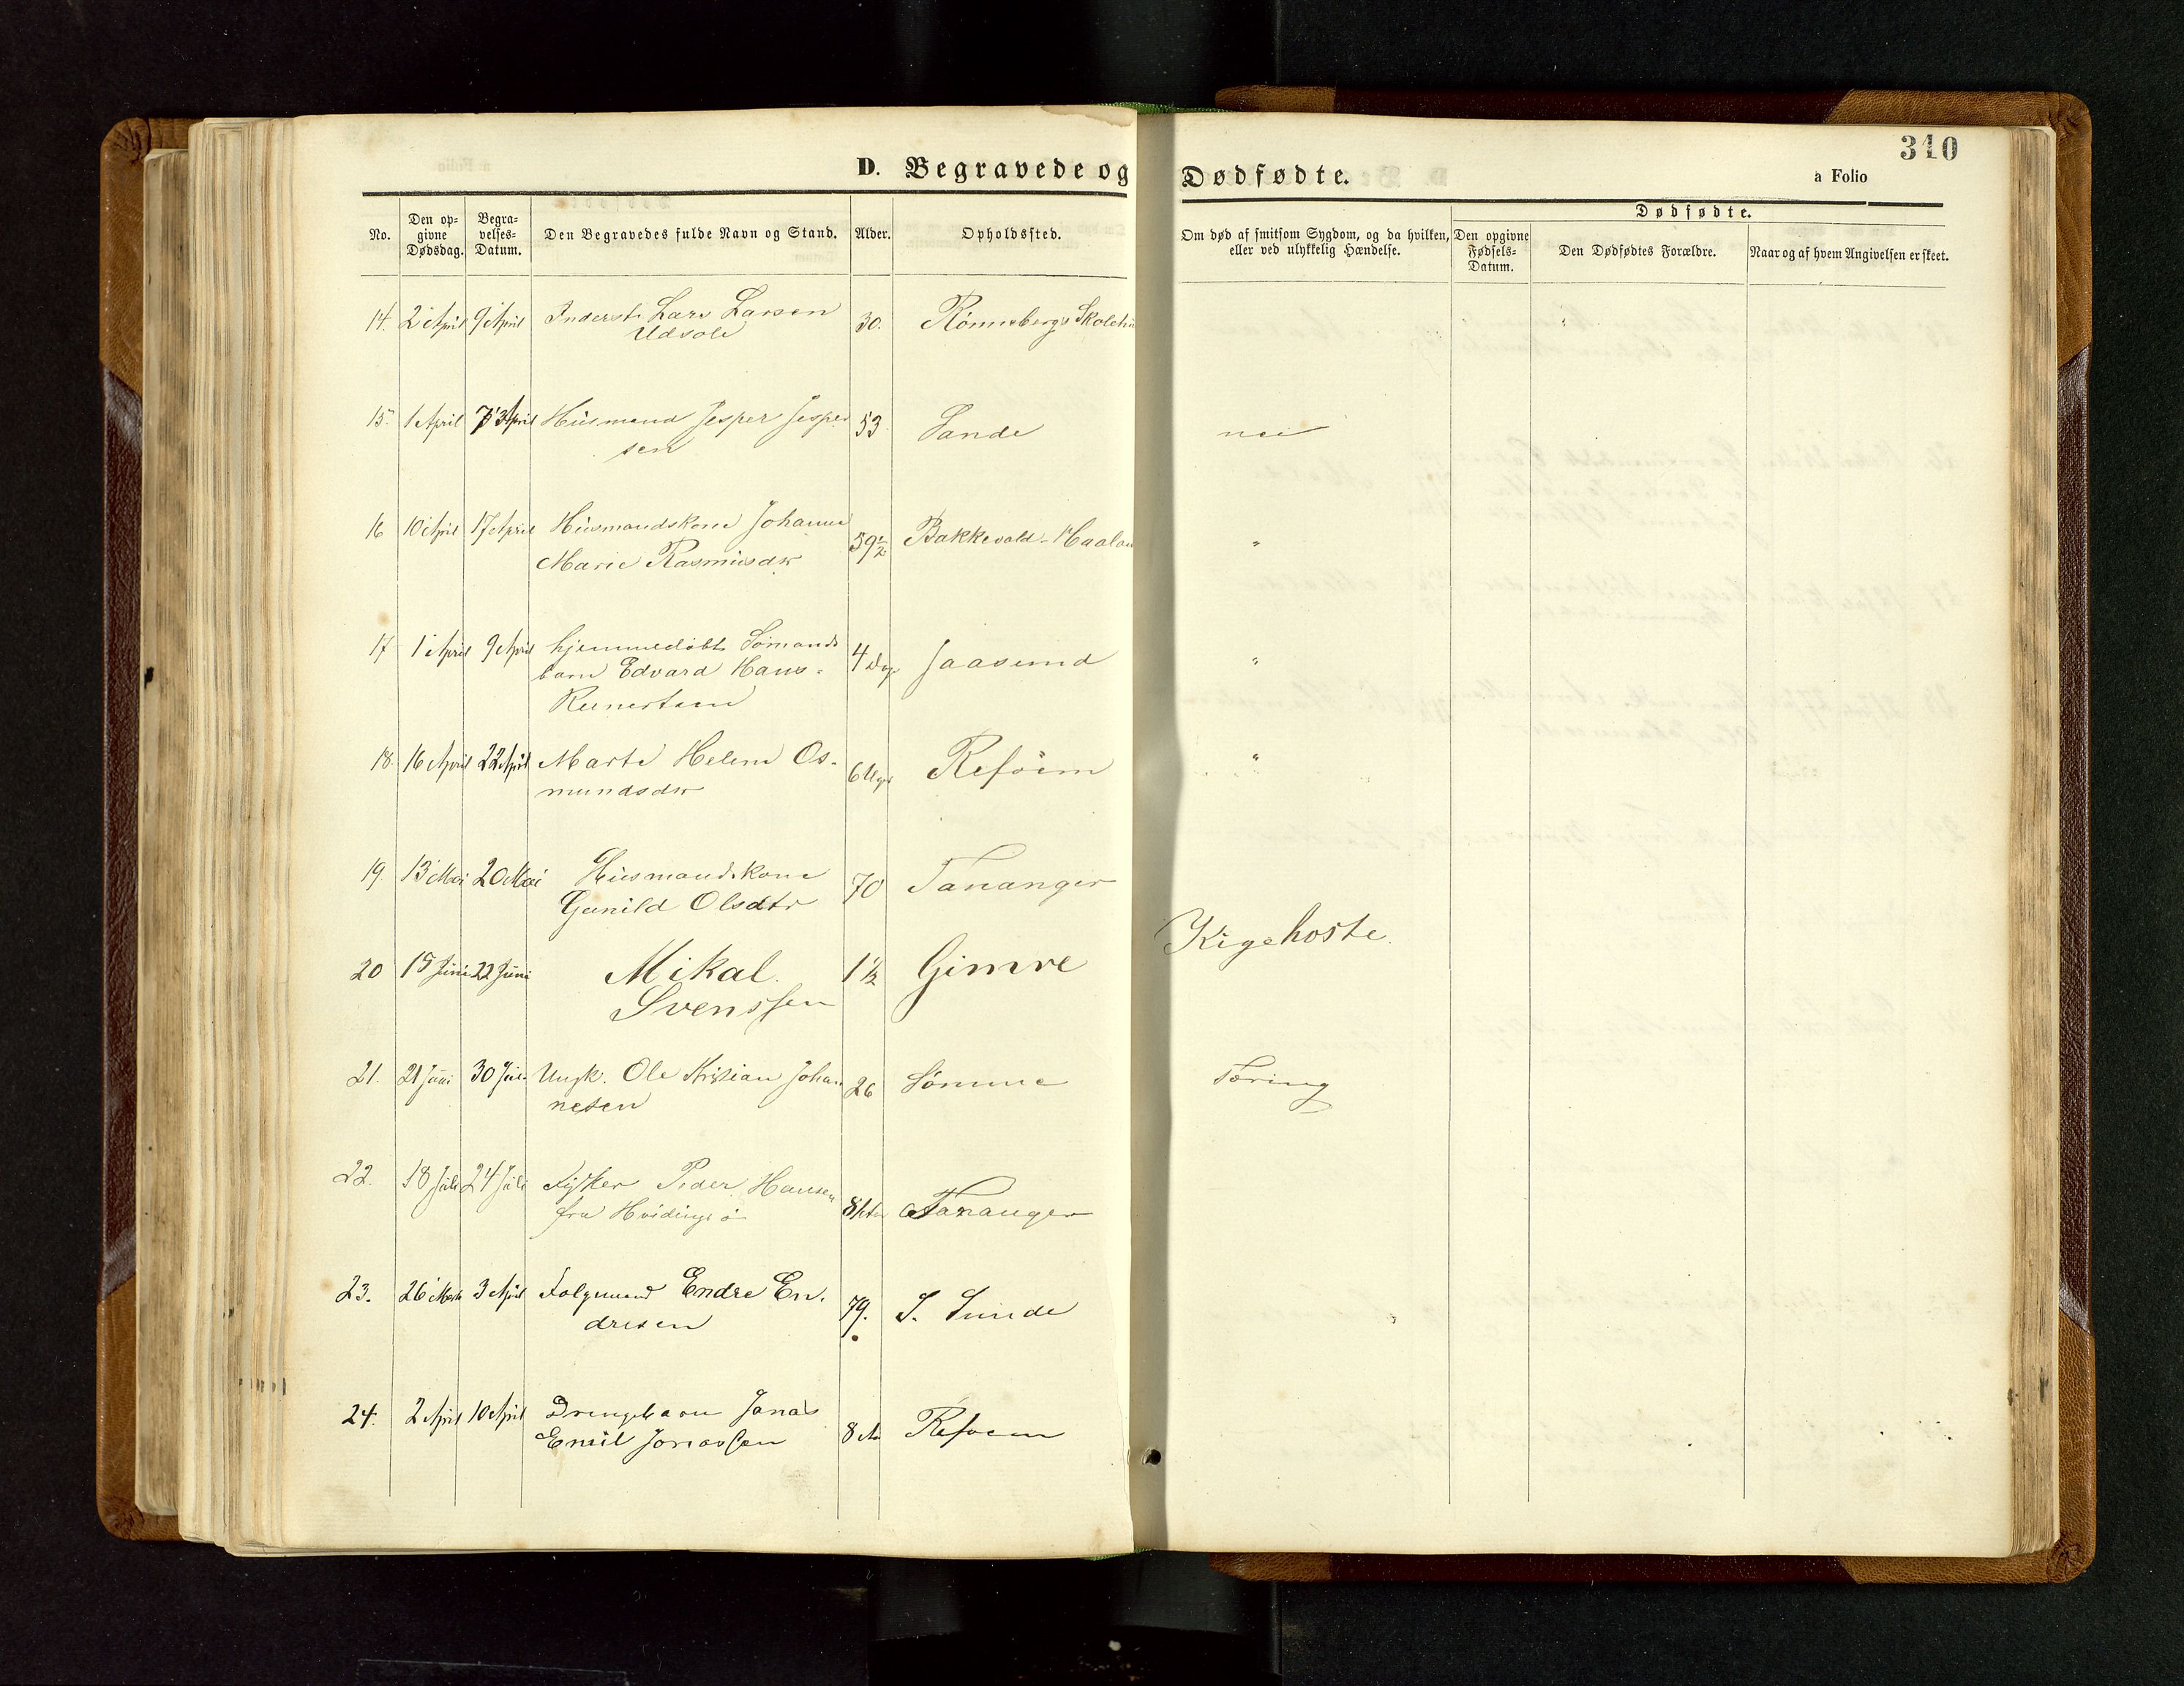 310
D. Begravede og Dødfødte.
a Folio
No.
Den op-
givne
Dødsdag.
Begra-
velses-
Datum.
Den Begravedes fulde Navn og Stand.
Alder.
Opholdssted.
Om død af smitsom Sygdom, og da hvilken,
eller ved ulykkelig Hændelse.
Dødfødte.
Den opgivne
Fødsels-
Datum.
Den Dødfødtes Forældre.
Naar og af hvem Angivelsen er skeet.
14. 2 April 9 April Inderst Lars Larsen 30. Rönnebergs Skolehu
Udsole
15. 1 April April Husmand Jesper Jesper 53 Sande nei
sen
16 10 April 17 April Husmandskone Johanne
Marie Rasmusdtr 59½ Bakkevold-Haalan "
17 1 April 9 April hjemmedöbt Sömands
barn Edvard Hans 4 Dage Jaasund "
Reinertsen
18. 16 April 22 April Marte Helene Os- 6 Uger Refsöen "
mundsdtr
19. 13 Mai 20 Mai Husmandskone 70 Tananger
Gunild Olsdtr
Kigehoste.
20 15 Juni 22 Juni Mikal 1½ Gimre
Svenssen
21. 21 Juni 30 Juni Ungk. Ole Kristian Johan 26 Sömme Tæring
nesen
22. 18 Juli 24 Juli Fisker Peder Hansen
fra Hvidingsö Tananger
23. 26 Marts 3 April Folgemand Endre En- 79. S. Sunde
dresen
24. 2 April 10 April Drengebarn Jonas
Emil Jonassen 8 Refsöen